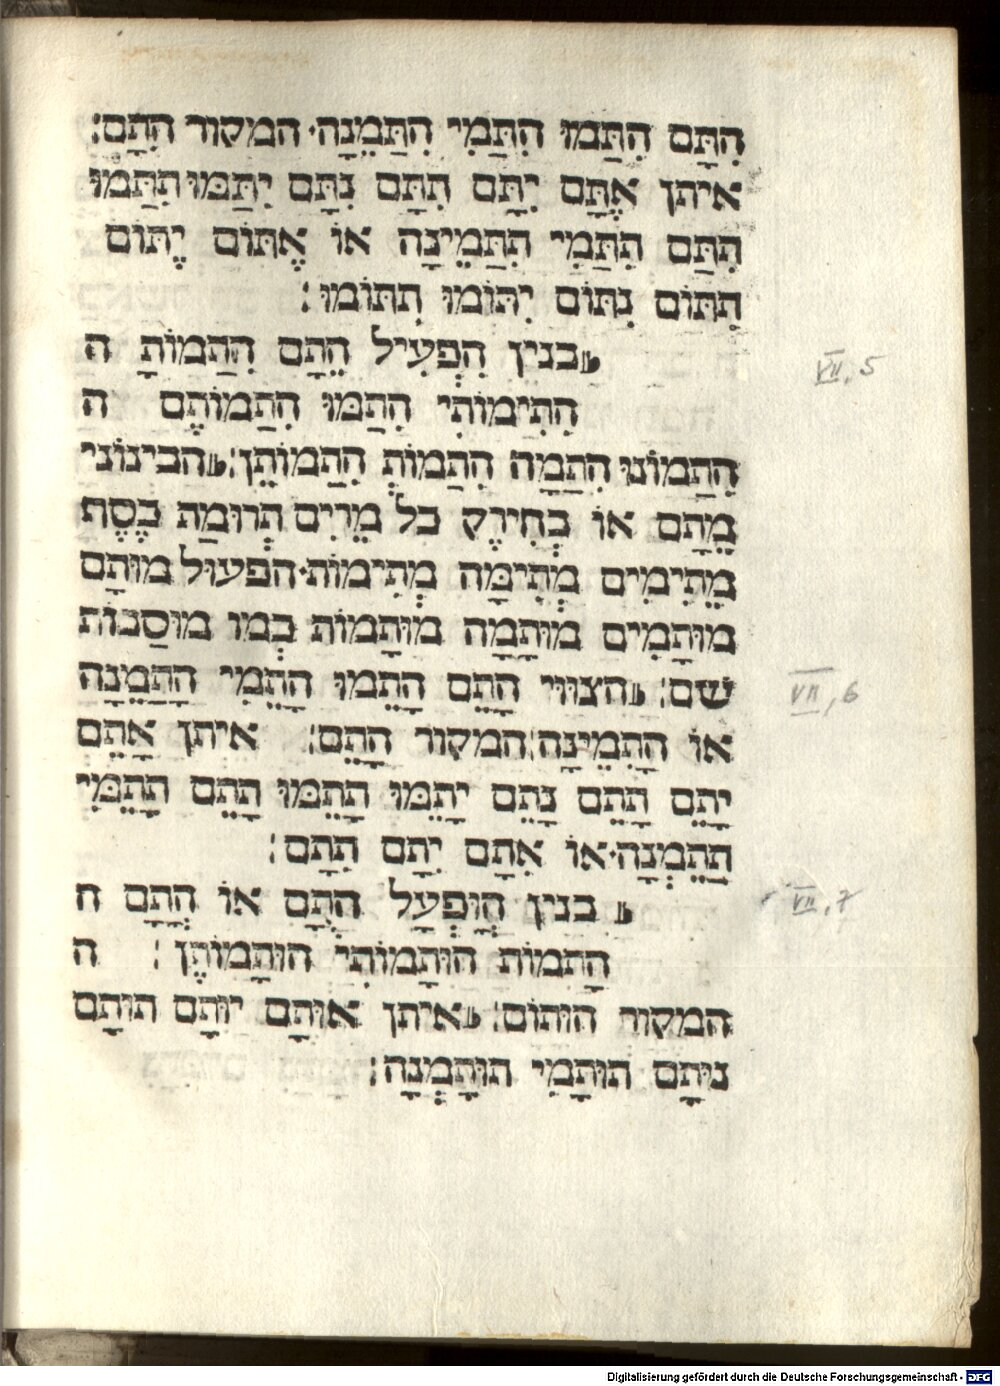 הִתָּם הִתַּמּוּ הִתַּמִּי הִתַּמֵּנָה׃ המקור הִתָּם׃
איתן אֶתָּם יִתָּם תִתָּם נִתָּם יִתַּמּוּ תִתַּמּוּ
תִתַּם תִתַּמִּי תִתַּמֵּינָה אוֹ אֶתּוֹם יִתּוֹם
תִתּוֹם נִתּוֹם יִתּוֹמוּ תִתּוֹמוּ׃
בנין הִפְעִיל הֵתָם הִתַמּוֹתָ ה
הִתִימוֹתִי הִתַמּוּ הִתַמּוֹתֶם ה
הִתַמּוֹנוּ הִתַמָּה הִתַמּוֹתְ הִתַמּוֹתֶן׃ הבינוני
מֵתָם אוֹ בְּחִירֶק כל מֵרִים תְּרוּמַת כֶּסֶף
מְתִימִים מְתִימָּה מְתִימוֹת׃ הפעול מוּתָם
מוּתָמִים מוּתָמָה מוּתָמוֹת כְּמו מוּסַבּוֹת
שם׃ הצווּי הָתֵם הָתֵמּוּ הָתֵמִּי הָתֵמֵּנָה
אוֹ הָתִמֵּינָה׃ המקור הָתֵם׃ איתן אָתֵם
יָתֵם תָתֵם נָתֵם יָתֵמּוּ תָתֵמּוּ תָתֵם תָתֵמִּי
תָתֵמְנָה׃ אוֹ אִתָם יִתָם תִתָם׃
בנין הֻוְפְעַל הֻתָם אוֹ הָתָם ה
הָתַמוֹת הוּתָמוֹתִי הוּתָמוֹתֶן׃ ה
המקור הוּתוֹם׃ איתן אוּתָם יוּתָם תוּתָם
נוּתָם תוּתָמִי תוּתָמְנָה׃
VII, 5
VII, 6
VII, 7
Digitalisierung gefördert durch die Deutsche Forschungsgemeinschaft - DFG